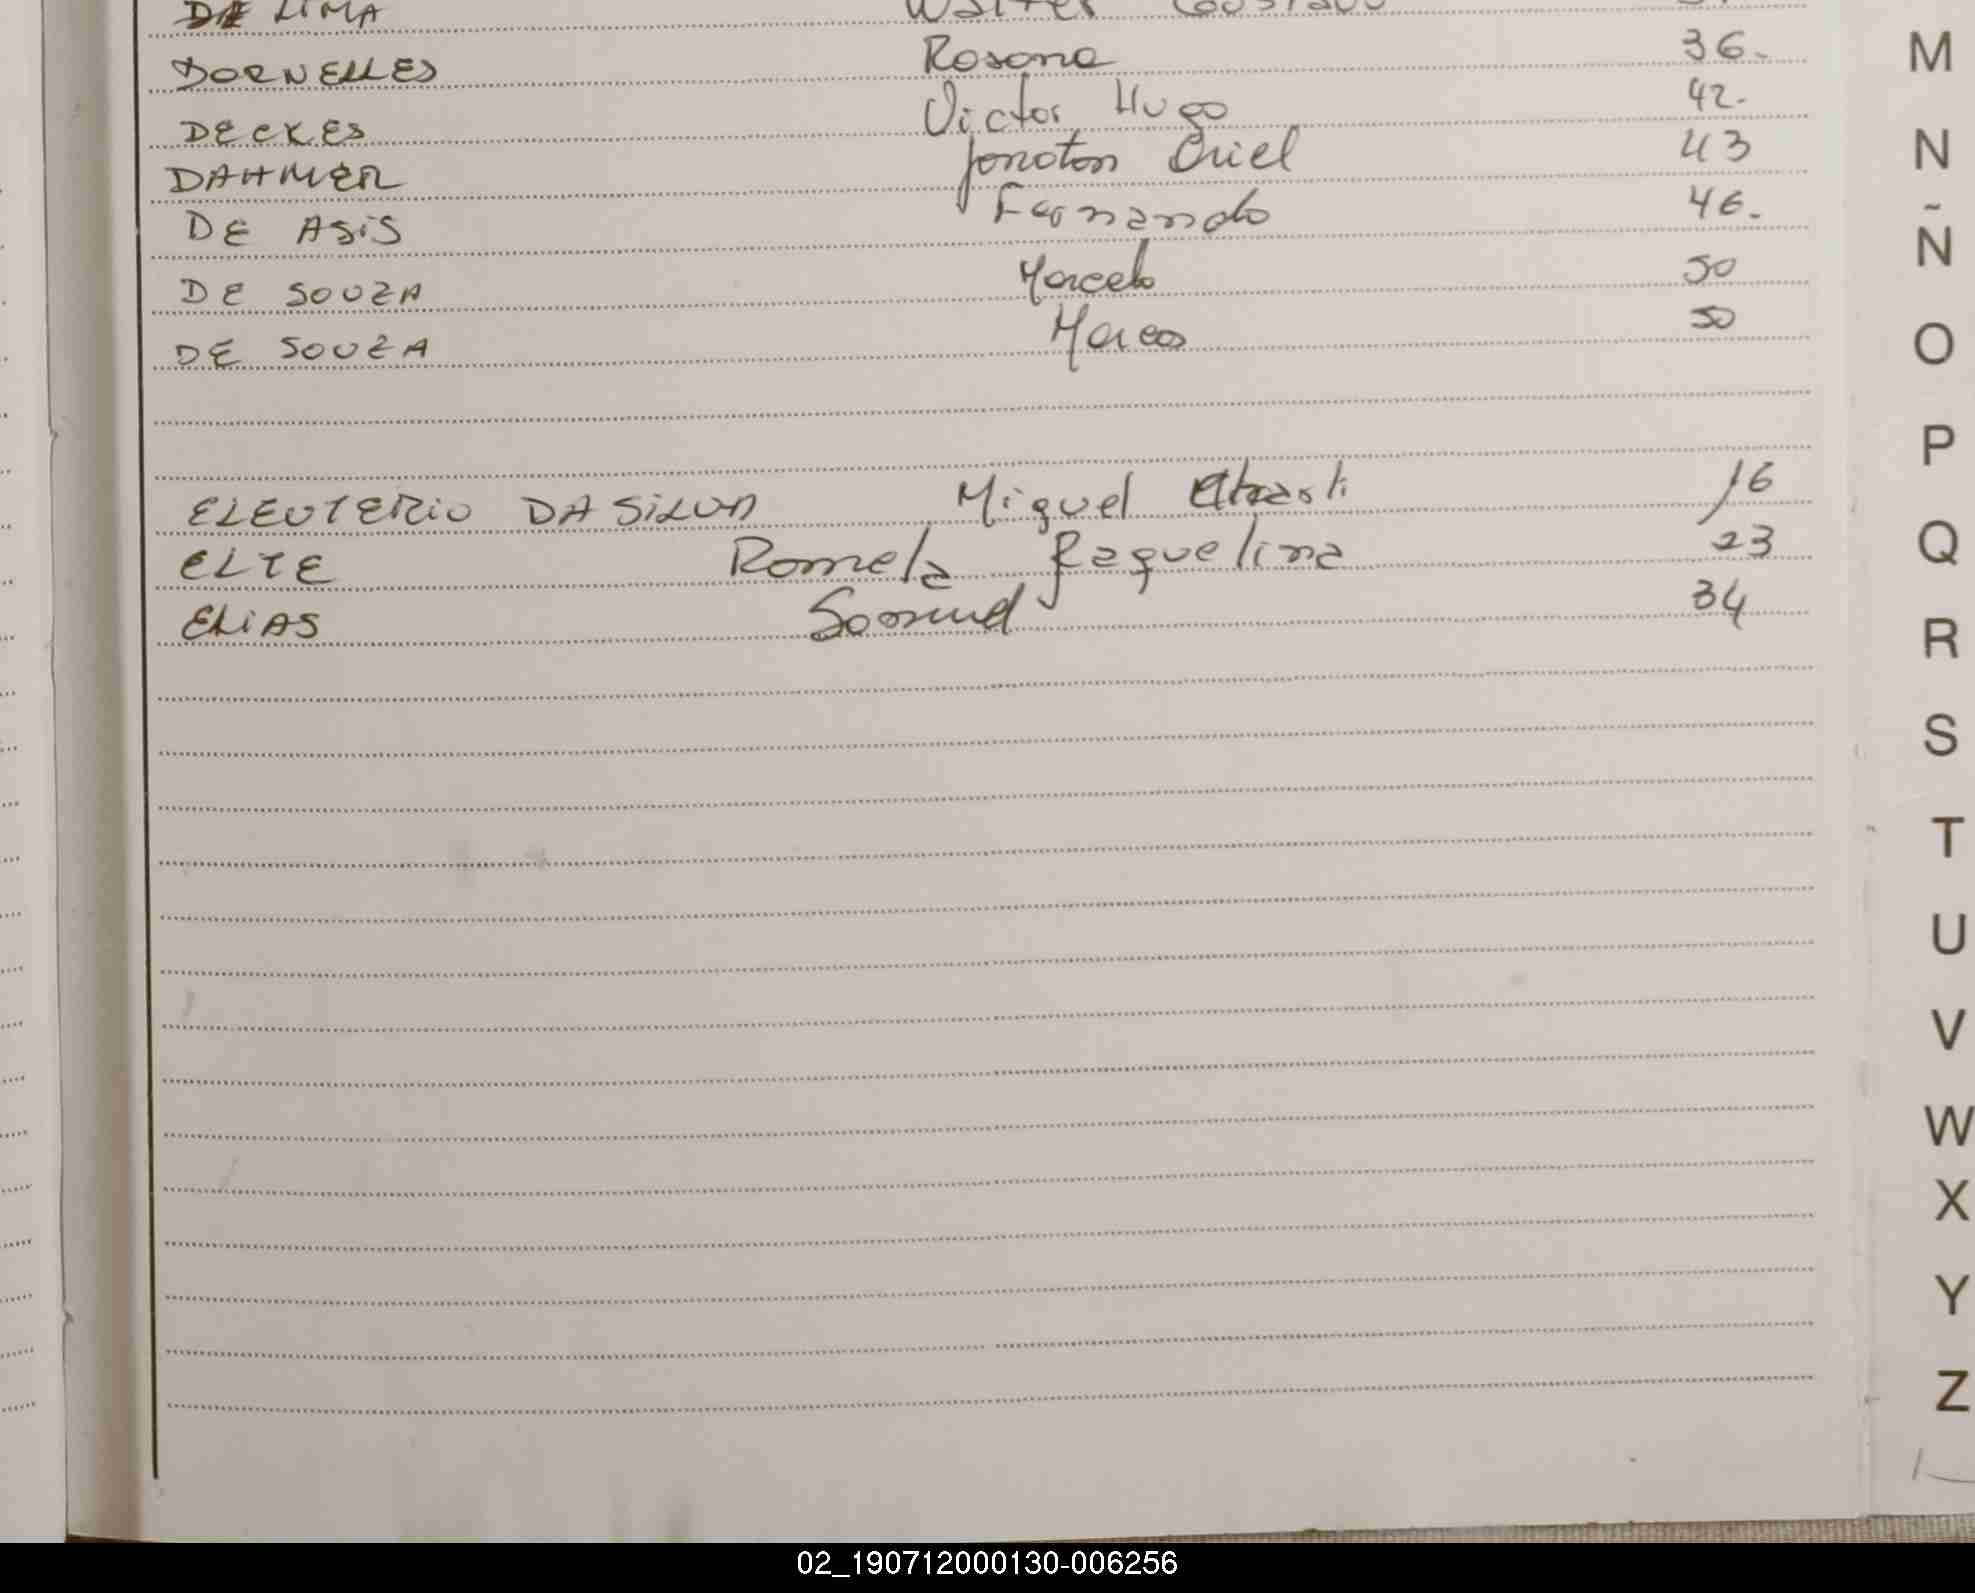 DA LIMA Walter Gustavo
DORNELLES Rosana 36.
DECKES Victor Hugo 42.
DAHMER Jonatan Oriel 43
DE ASIS Fernando 46.
DE SOUZA Marcelo 50
DE SOUZA Marcos 50
ELEUTERIO DA SILVA Miguel 16
ELTE Romela Raquelina 23
ELIAS Samuel 34
M
N
Ñ
O
P
Q
R
S
T
U
V
W
X
Y
Z
02_190712000130-006256